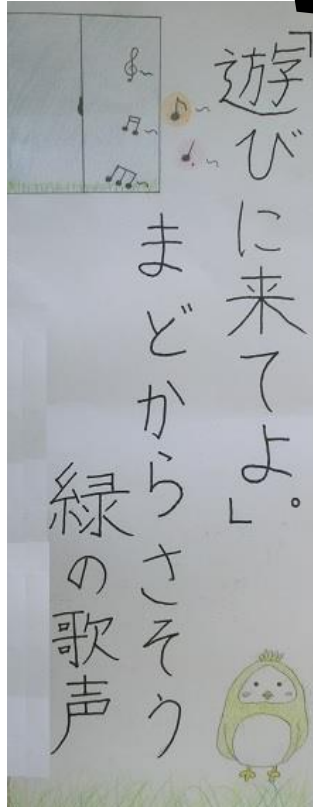 「遊びに来てよ。」
まどからさそう
緑の歌声